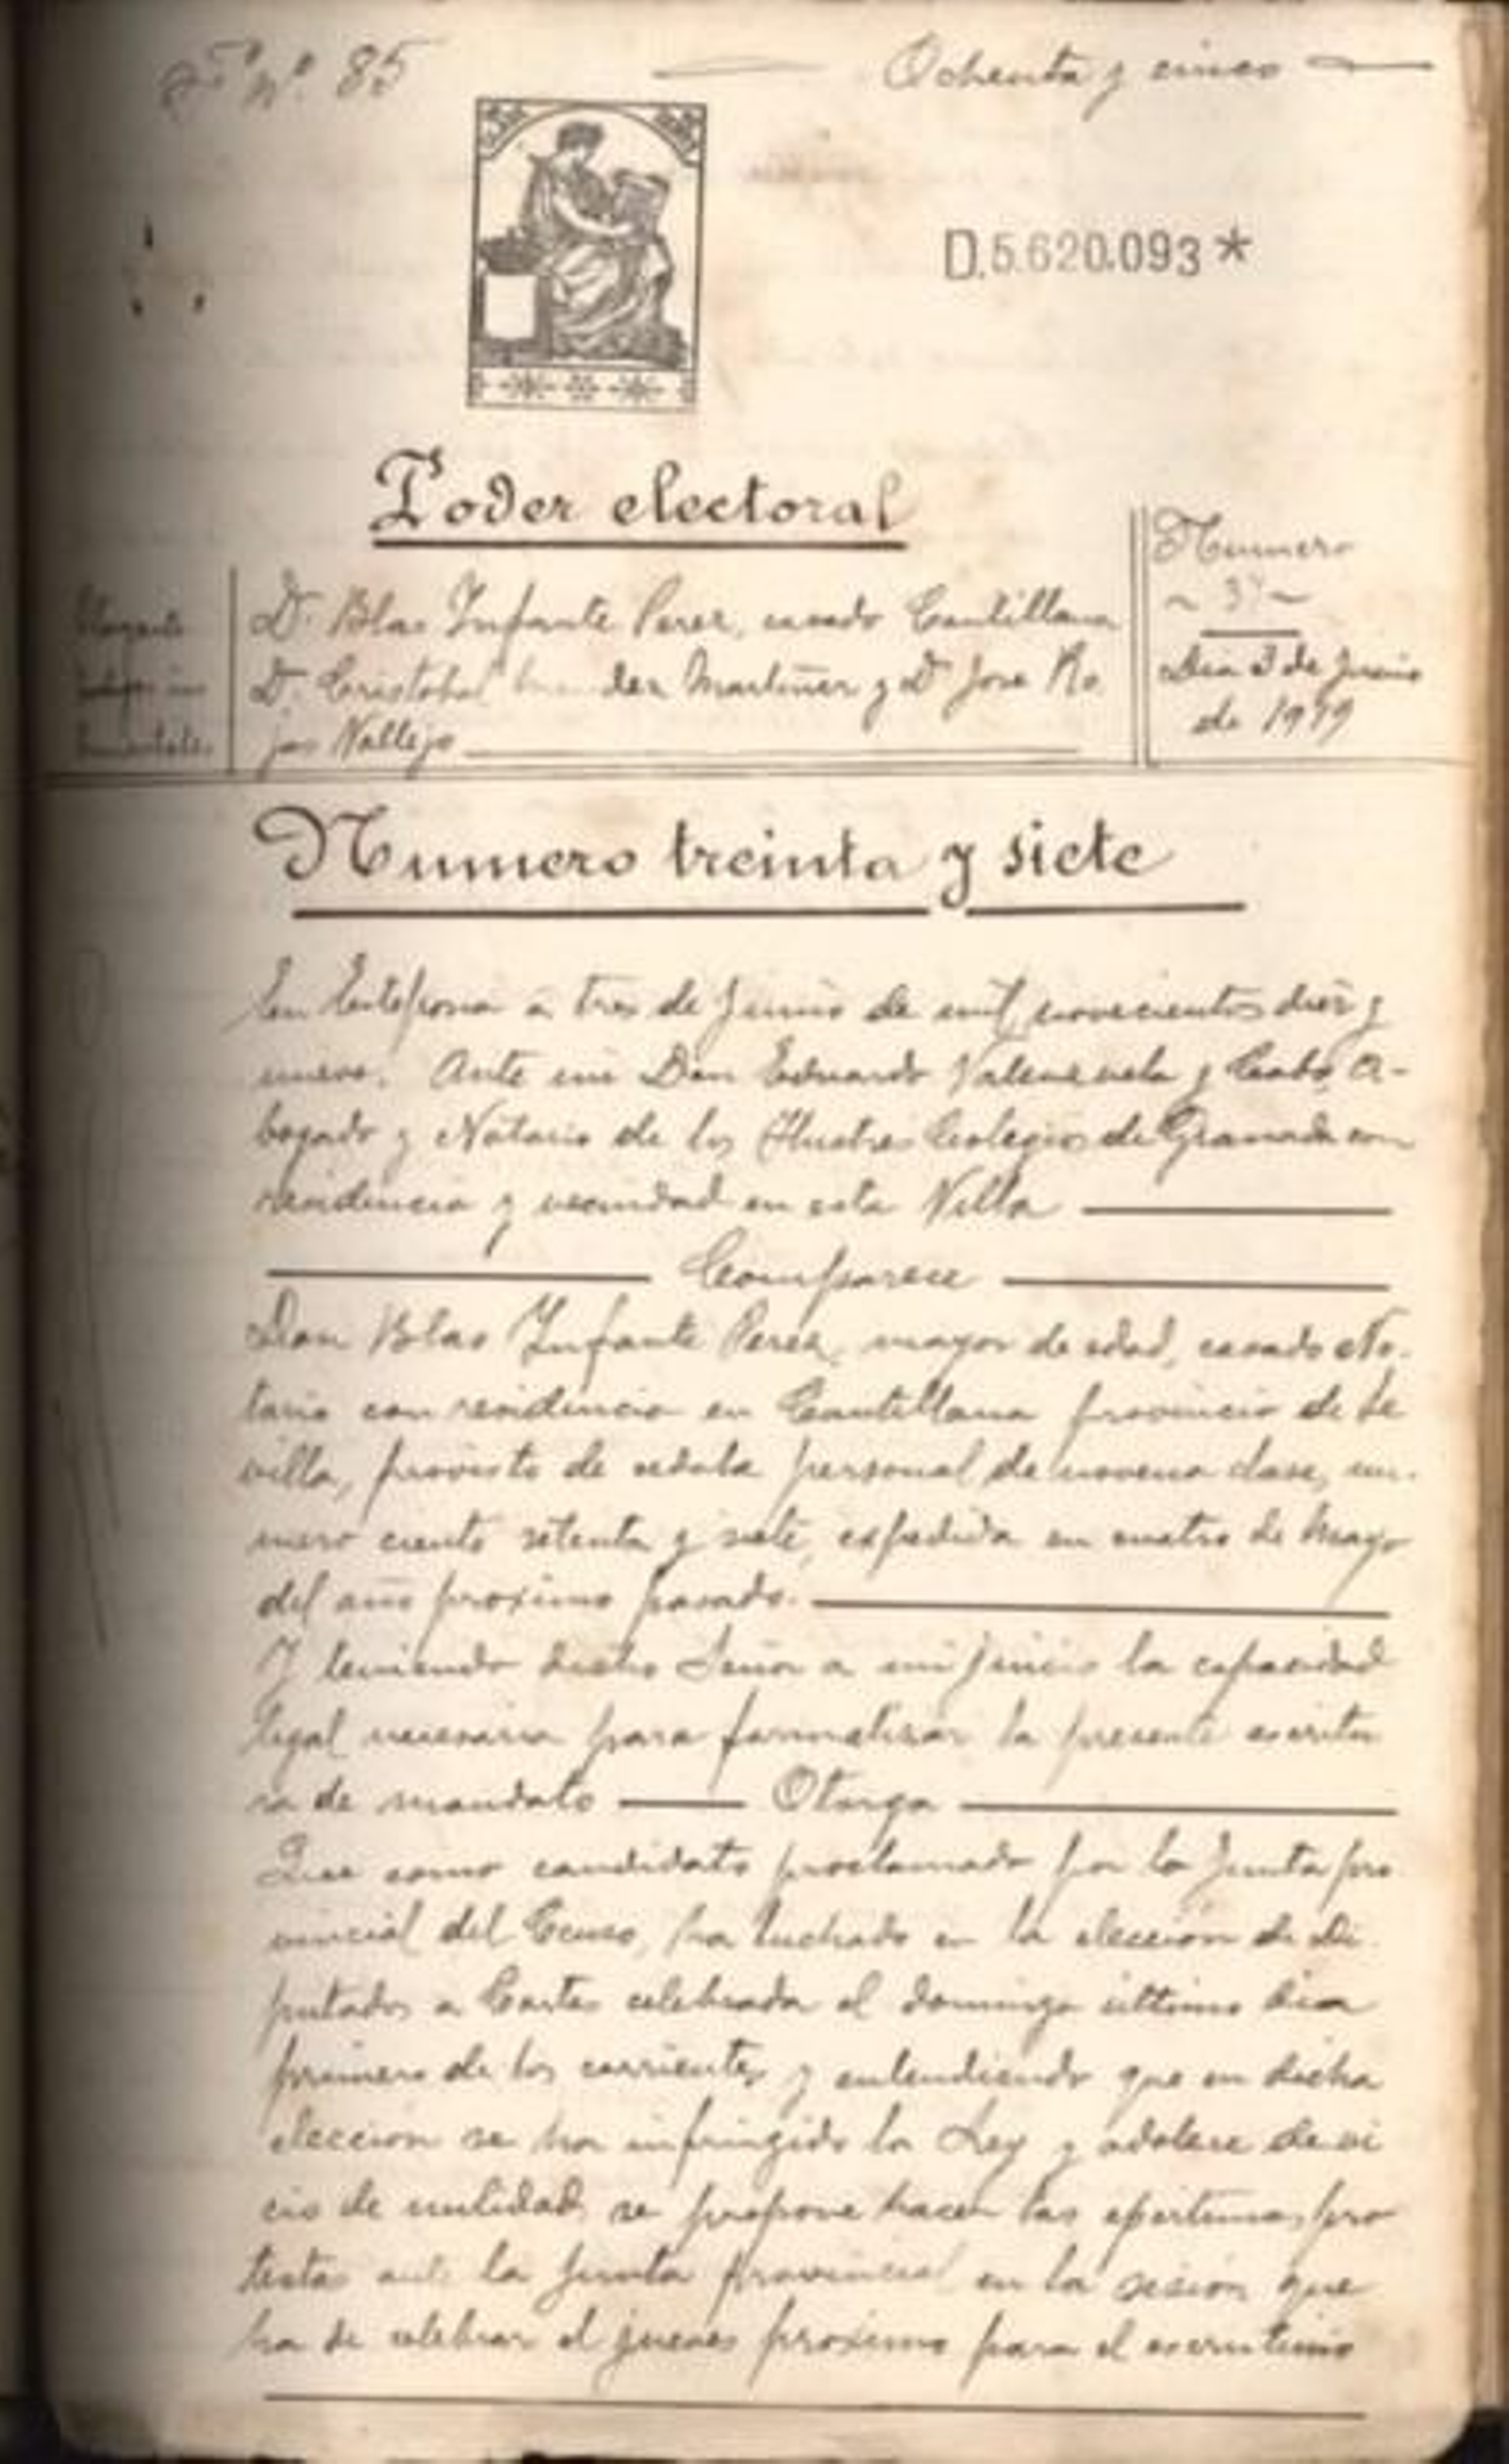 nº 85
Ochenta y cinco
D.5.620.093*
Poder electoral
Numero
37
Dia 3 de Junio
de 1919
D. Blas Infante Perez, casado Cantillana
D. Cristobal Martinez y D. Jose Ro
jas Vallejo
Numero treinta y siete
En Estepona a tres de Junio de mil novecientos diez y
nueve. Ante mi Don Eduardo Valenzuela y Cabo, A-
bogado y Notario de los Ilustres Colegios de Granada con
residencia y vecindad en esta Villa
Comparece
Don Blas Infante Perez, mayor de edad, casado No-
tario con residencia en Cantillana provincia de Se
villa, provisto de cedula personal de novena clase, nu-
mero ciento setenta y siete, expedida en cuatro de Mayo
del año proximo pasado.
Y teniendo dicho Señor a mi juicio la capacidad
legal necesaria para formalizar la presente escritu
ra de mandato Otorga
Que como candidato proclamado por la Junta pro
vincial del Censo, ha luchado en la eleccion de Di
putados a Cortes celebrada el domingo ultimo dia
primero de los corrientes y entendiendo que en dicha
eleccion se ha infringido la Ley y adolece de vi
cio de nulidad, se propone hacer las oportunas pro
testas ante la Junta provincial en la sesion que
ha de celebrar el jueves proximo para el escrutinio